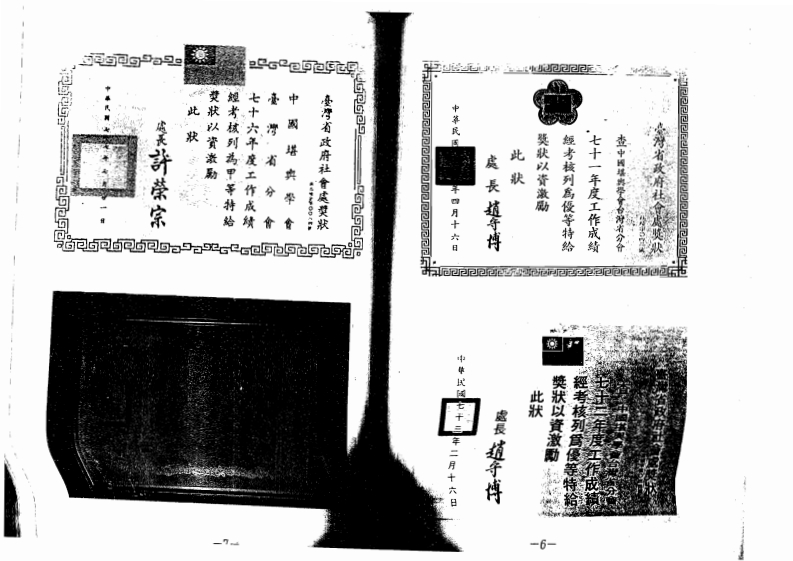 臺灣省政府社會處獎狀
查中國堪輿學會台灣省分會
七十一年度工作成績
經考核列為優等特給
獎狀以資激勵
此狀
處長 趙守博
中華民國
年四月十六日
七十二年度工作成績
經考核列為優等特給
獎狀以資激勵
此狀
處長 趙守博
中華民國七十三年二月十六日
—6—
臺灣省政府社會處獎狀
中國堪輿學會
臺灣省分會
七十六年度工作成績
經考核列為甲等特給
獎狀以資激勵
此狀
處長 許榮宗
中華民國七
—7—